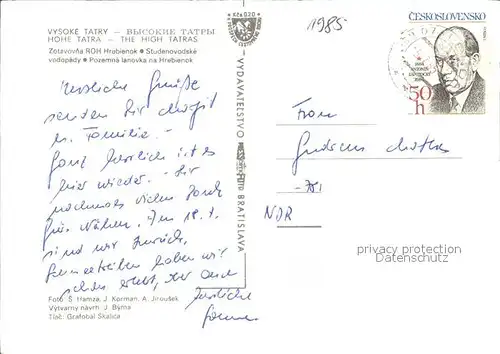 VYSOKÉ TATRY — ВЫСОКИЕ ТАТРЫ
HOHE TATRA — THE HIGH TATRAS
Zotavovňa ROH Hrebienok ● Studenovodské
vodopády ● Pozemná lanovka na Hrebienok
Herzliche Grüße
senden Dir
u. Familie.
Ganz herrlich ist es
hier wieder. Dir
nochmals vielen Dank
fürs Nähen. Am 18.1.
sind wir zurück.
haben wir
schon erlebt, Ihr auch
herzliche
Foto: Š. Hamza, J. Korman, A. Jiroušek
Výtvarný návrh: J. Býrna
Tlač: Grafobal Skalica
VYDAVATEĽSTVO BRATISLAVA
1985
ČESKOSLOVENSKO
1884
ANTONÍN
ZÁPOTOCKÝ
50
h
Frau
Gudrun
NDR
privacy protection
Datenschutz